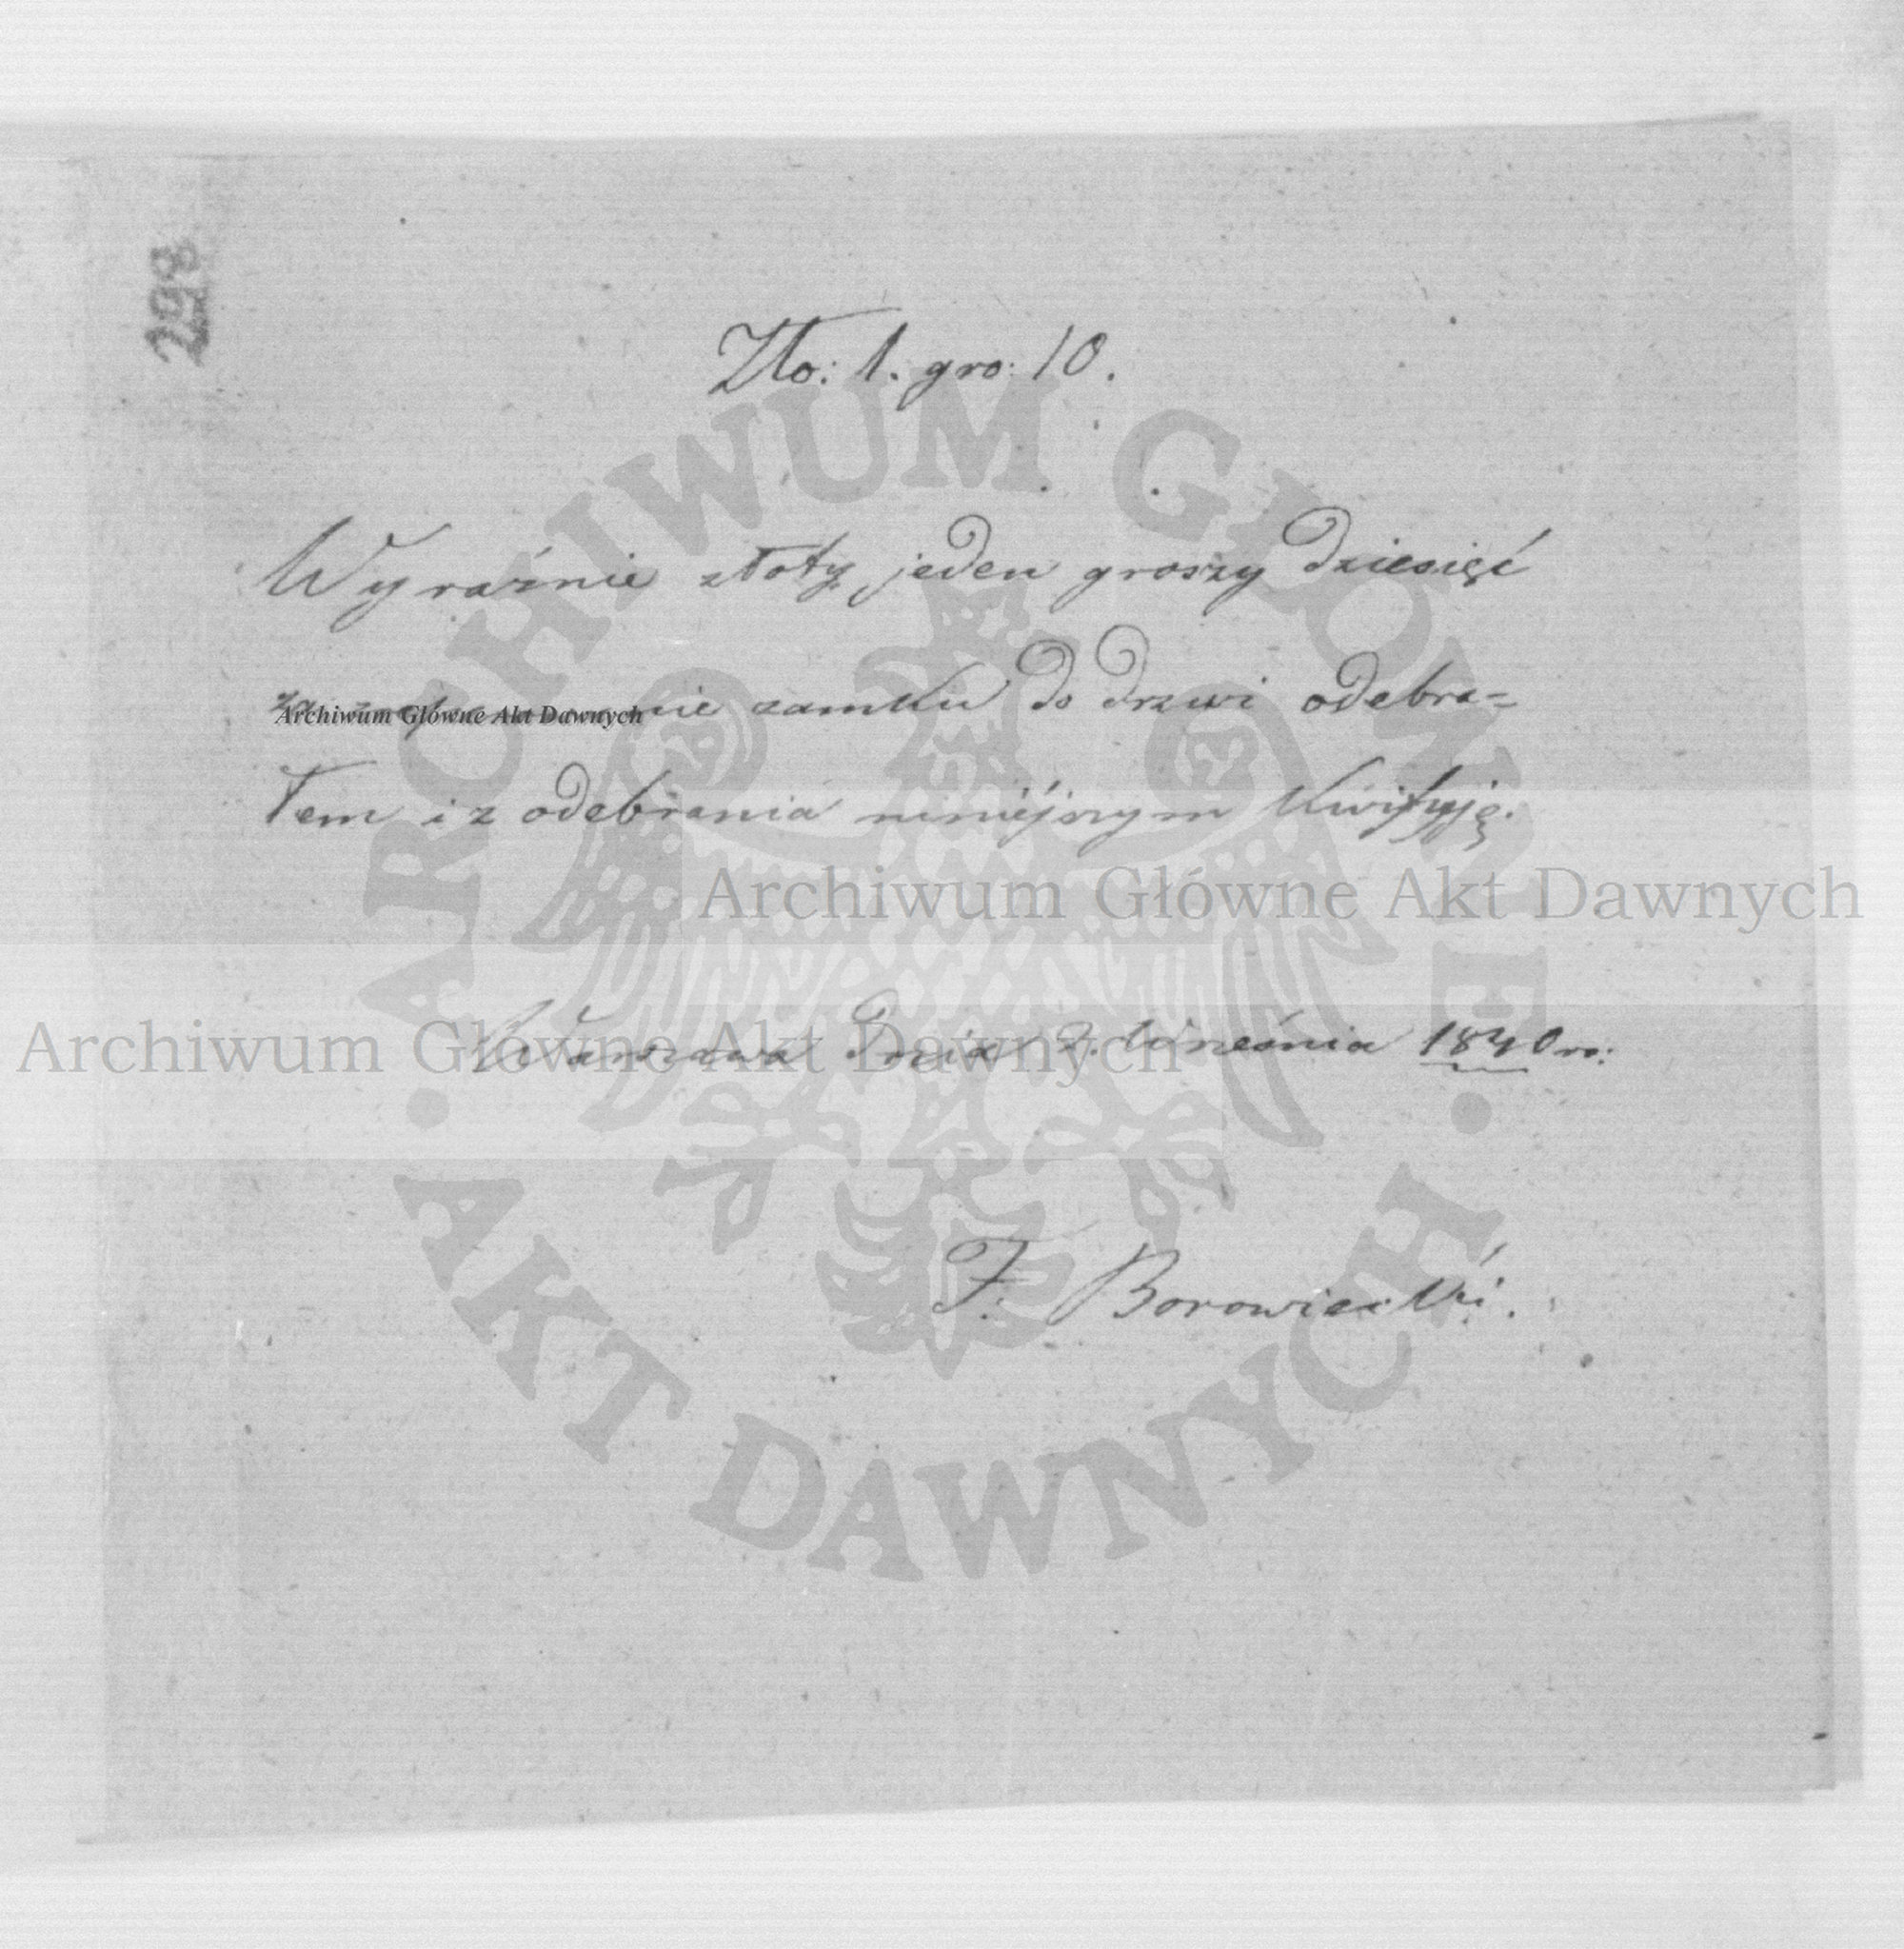 298
Zło: 1. gro: 10.
Wyraźnie złoty jeden groszy dziesięć
za zamku do drzwi odebra=
Archiwum Główne Akt Dawnych
łem i z odebrania niniéjszym kwituję.
Archiwum Główne Akt Dawnych
Warszawa dnia 2. Września 1840 ro:
Archiwum Główne Akt Dawnych
F. Borowiecki.
ARCHIWUM GŁÓWNE
AKT DAWNYCH